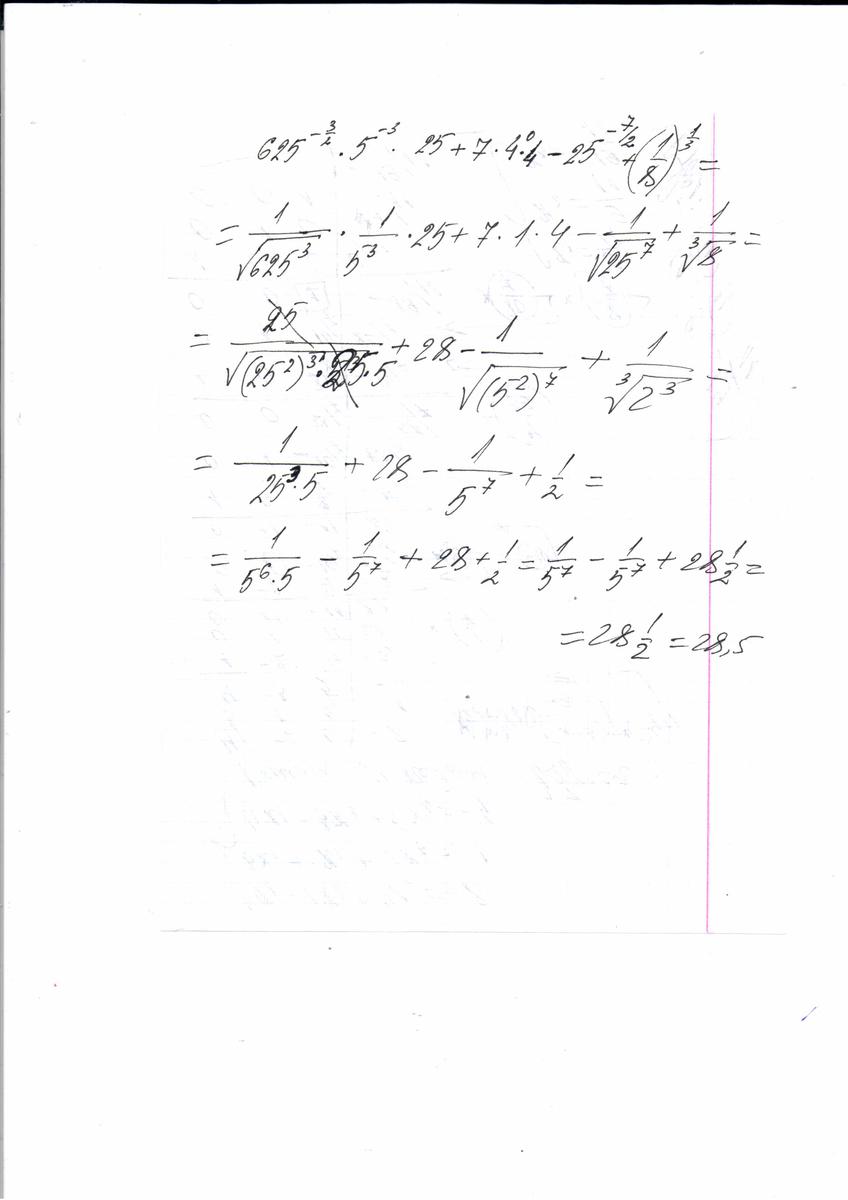 625^{-3/2} · 5^{-3} · 25 + 7 · 4^0 · 4 - 25^{-7/2} + (1/8)^{1/3} =
= 1/√(625^3) · 1/5^3 · 25 + 7 · 1 · 4 - 1/√(25^7) + 1/∛8 =
= 25/(√((25^2)^3) · 25 · 5) + 28 - 1/√((5^2)^7) + 1/∛(2^3) =
= 1/(25^3 · 5) + 28 - 1/5^7 + 1/2 =
= 1/(5^6 · 5) - 1/5^7 + 28 + 1/2 = 1/5^7 - 1/5^7 + 28 1/2 =
= 28 1/2 = 28,5